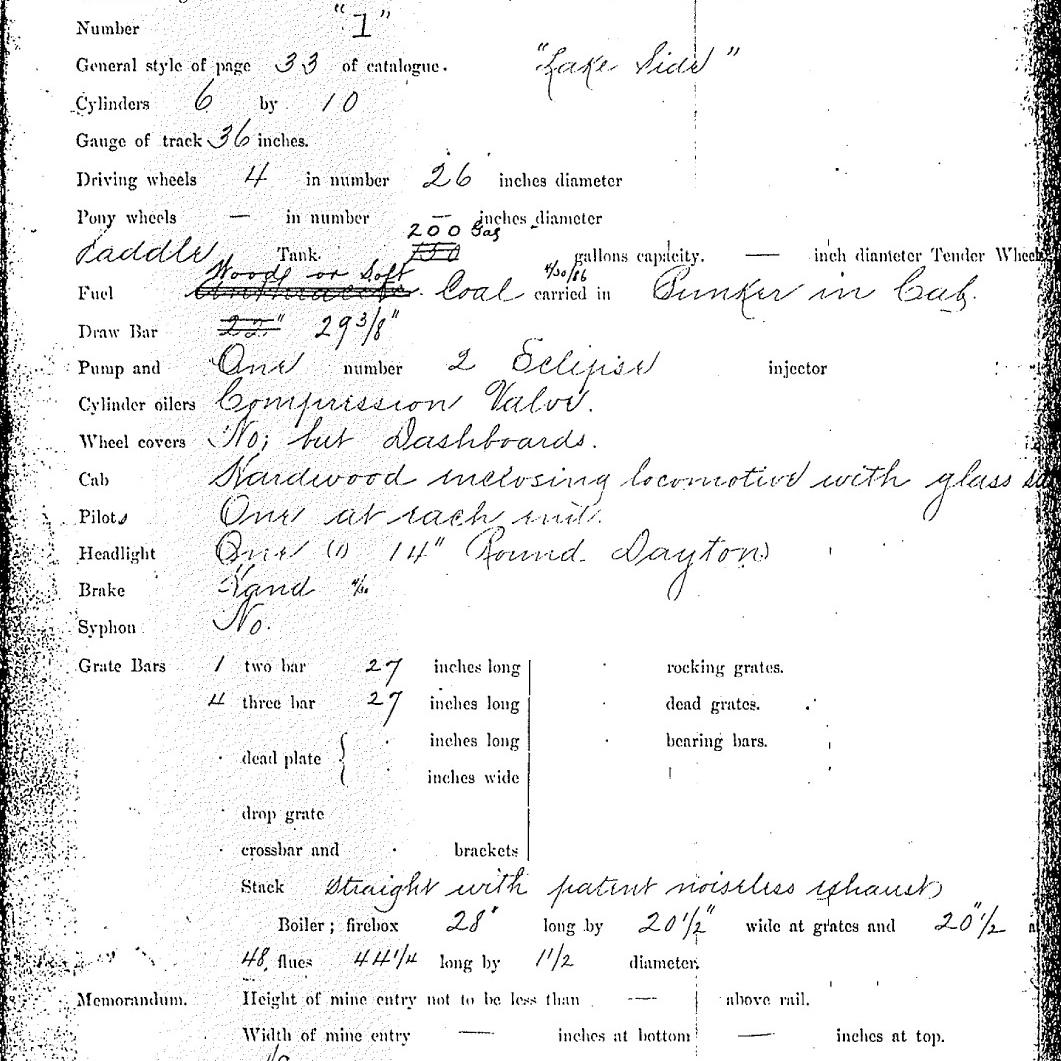 Number "1"
General style of page 33 of catalogue. "Lake Side"
Cylinders 6 by 10
Gauge of track 36 inches.
Driving wheels 4 in number 26 inches diameter
Pony wheels — in number — inches diameter
200 Gas
Saddle Tank 150 gallons capacity. — inch diameter Tender Wheels
Wood or Soft 4/30/86
Fuel Anthracite Coal carried in Bunker in Cab.
Draw Bar 22" 29 3/8"
Pump and One number 2 Eclipse injector
Cylinder oilers Compression Valve.
Wheel covers No; but Dashboards.
Cab Hardwood inclosing locomotive with glass
Pilots One at each end.
Headlight One (1) 14" Round Dayton
Brake Hand 4/30
Syphon No.
Grate Bars 1 two bar 27 inches long rocking grates.
4 three bar 27 inches long dead grates.
inches long bearing bars.
dead plate {
inches wide
drop grate
crossbar and brackets
Stack Straight with patent noiseless exhaust
Boiler; firebox 28" long by 20 1/2" wide at grates and 20 1/2"
48 flues 44 1/4 long by 1 1/2 diameter.
Memorandum. Height of mine entry not to be less than — above rail.
Width of mine entry — inches at bottom — inches at top.